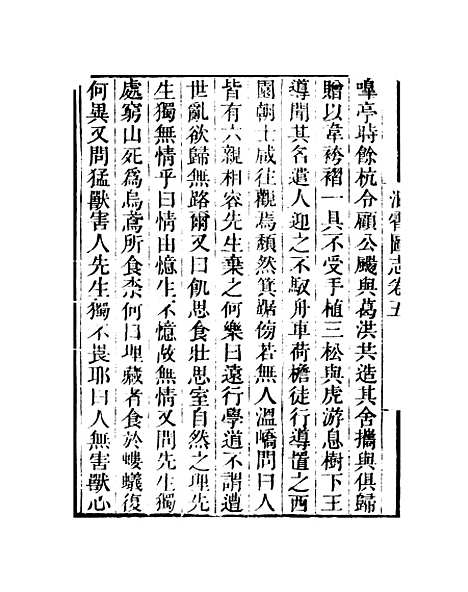 洞霄圖志卷五
嘷亭時餘杭令顧公颺與葛洪共造其舍攜與俱歸
贈以韋袴褶一具不受手植三松與虎游息樹下王
導聞其名遣人迎之不馭舟車荷檐徒行導置之西
園朝士咸往觀焉頽然箕踞傍若無人溫嶠問曰人
皆有六親相容先生棄之何樂曰遠行學道不謂遭
世亂欲歸無路爾又曰飢思食壯思室自然之理先
生獨無情乎曰情由憶生不憶故無情又問先生獨
處窮山死爲烏鳶所食柰何曰埋藏者食於螻蟻復
何異又問猛獸害人先生獨不畏耶曰人無害獸心